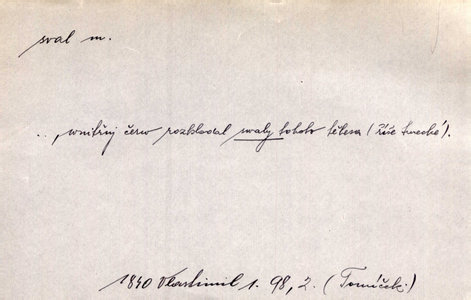 sval m.
.., wnitřnj čerw rozkládal swaly tohoto tělesa (říše turecké).
1840 Vlastimil 1. 98, 2. (Tomíček)